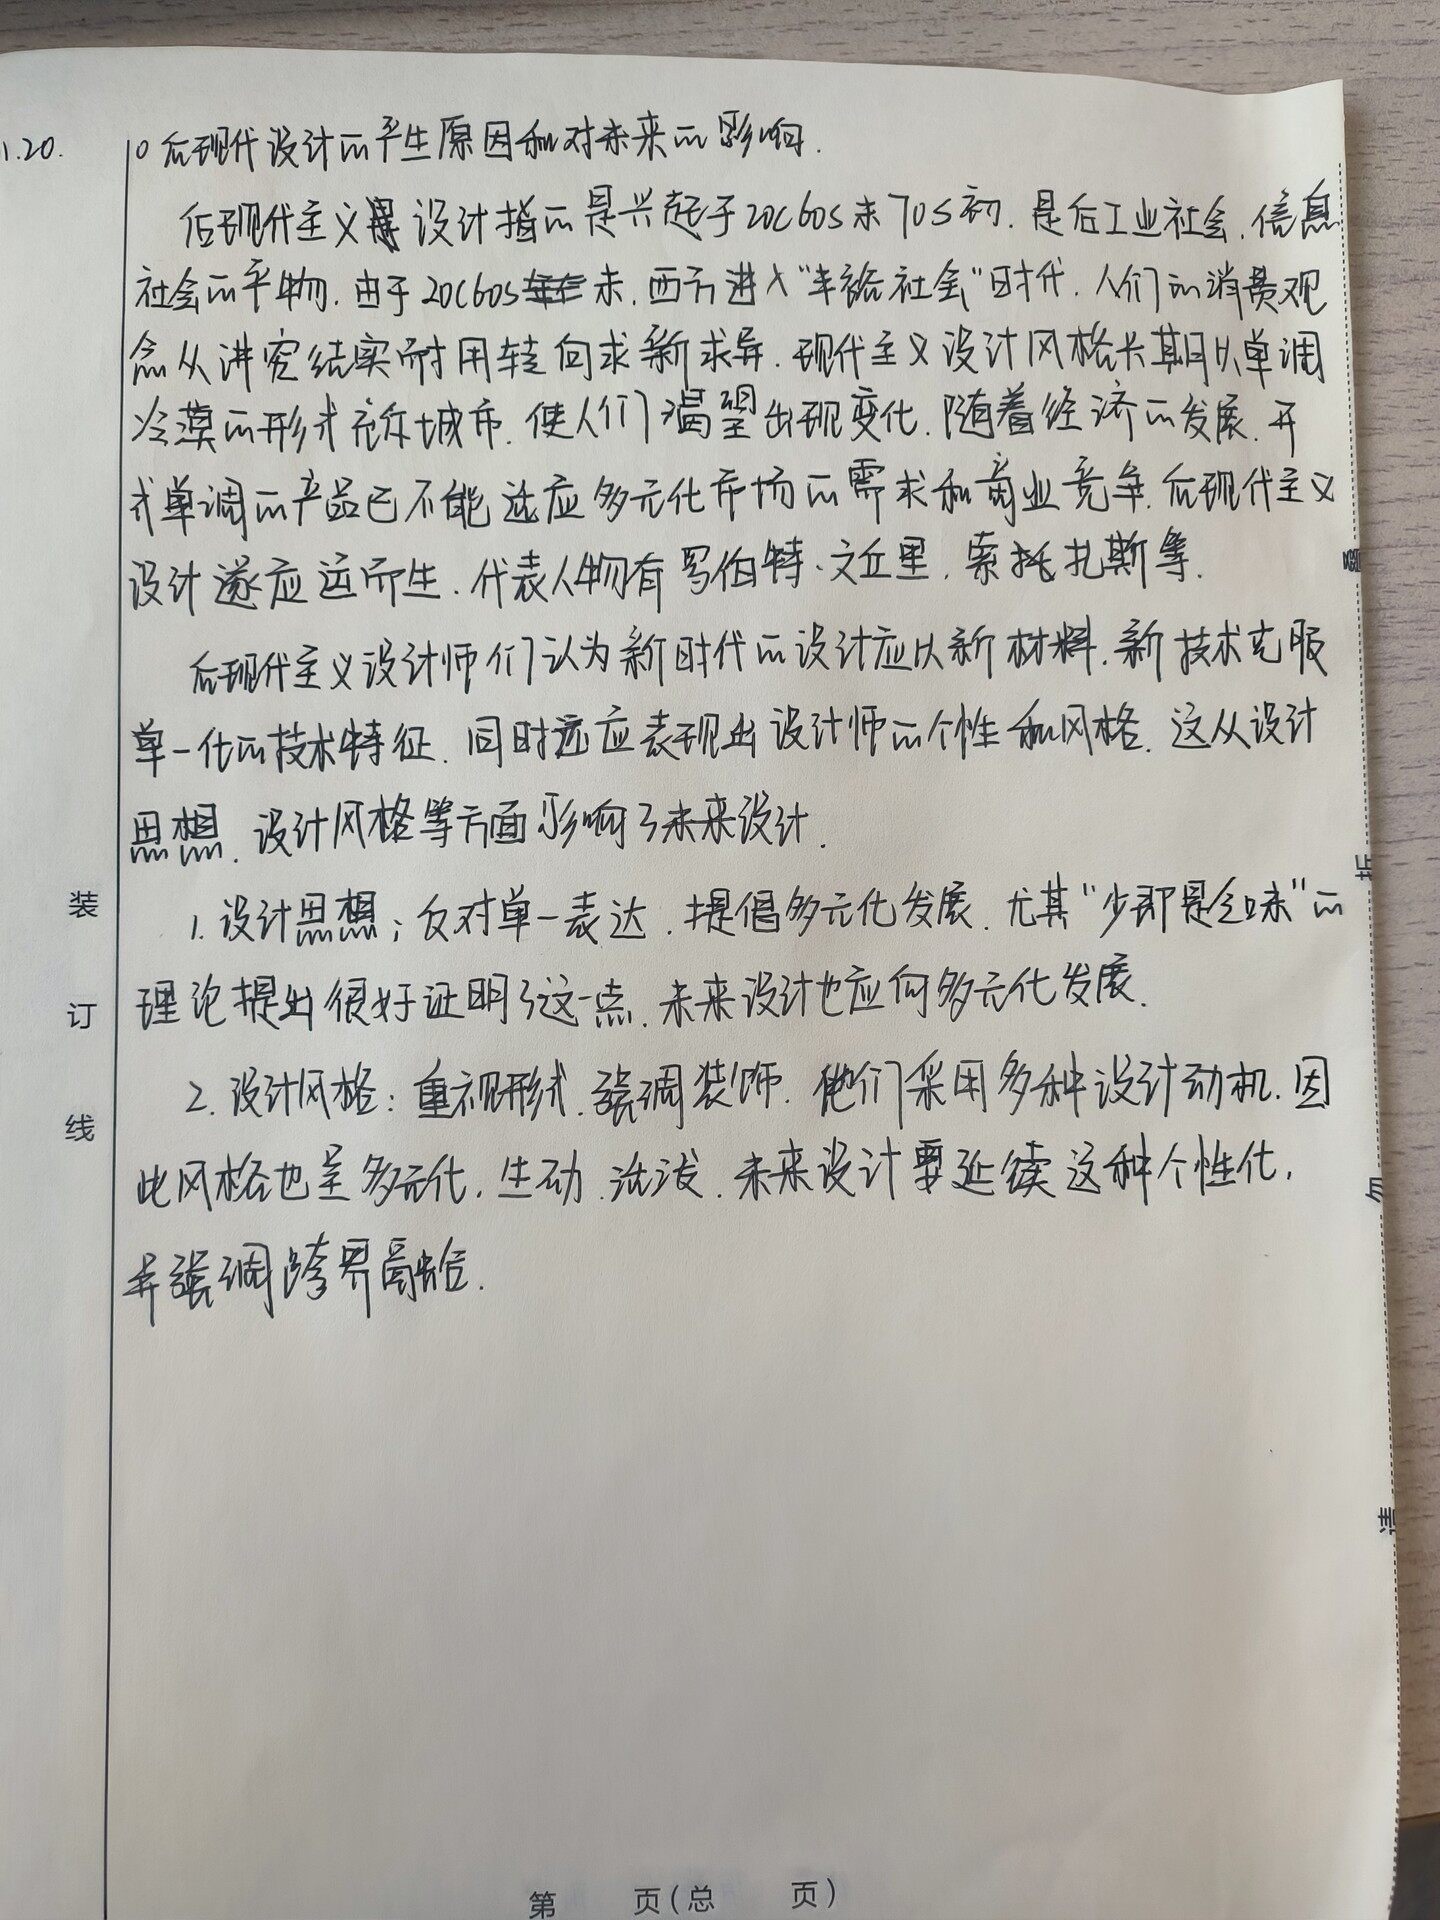 1.20.
10 后现代设计的产生原因和对未来的影响.
后现代主义设计指的是兴起于20C60S末70S初.是后工业社会.信息
社会的产物.由于20C60S末.西方进入"丰裕社会"时代.人们的消费观
念从讲究结实耐用转向求新求异.现代主义设计风格长期以单调
冷漠的形式充斥城市.使人们渴望出现变化.随着经济的发展.形
式单调的产品已不能适应多元化市场的需求和商业竞争.后现代主义
设计遂应运而生.代表人物有罗伯特·文丘里.索托扎斯等.
后现代主义设计师们认为新时代的设计应以新材料.新技术克服
单一化的技术特征.同时还应表现出设计师的个性和风格.这从设计
思想.设计风格等方面影响了未来设计.
1.设计思想;反对单一表达.提倡多元化发展.尤其"少即是乏味"的
理论提出很好证明了这一点.未来设计也应向多元化发展.
2.设计风格:重视形式.强调装饰.他们采用多种设计动机.因
此风格也呈多元化.生动.活泼.未来设计要延续这种个性化,
并强调跨界融合.
装
订
线
折
勿
请
第 页(总 页)